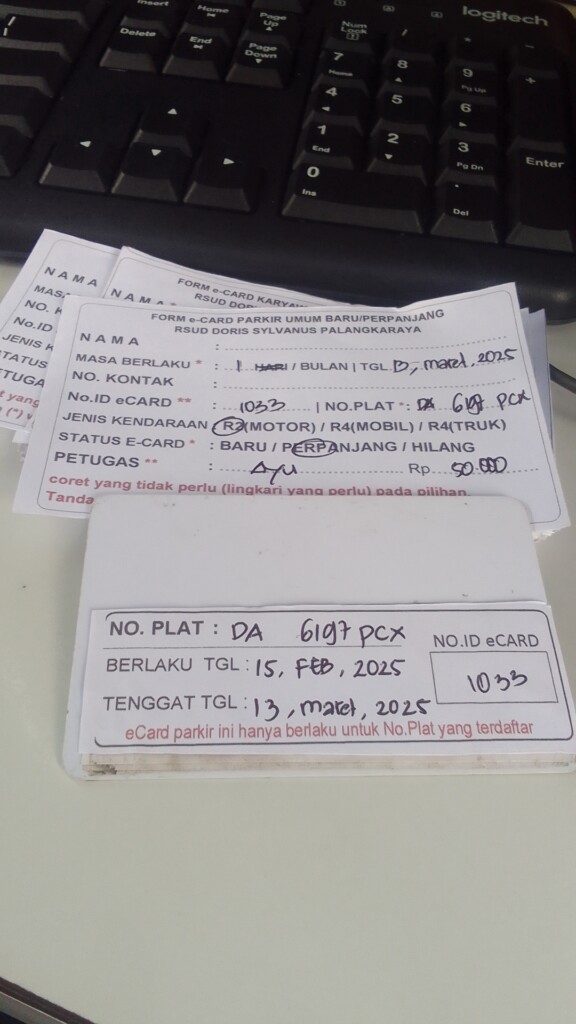 Insert Home Page Up Num Lock / * -
logitech
Delete End Page Down 7 Home 8 9 Pg Up +
4 5 6
1 End 2 3 Pg Dn Enter
0 Ins . Del
NAMA
NO.
No.ID
JENIS K
STATUS
NAMA
FORM e-CARD
RSUD
FORM e-CARD PARKIR UMUM BARU/PERPANJANG
RSUD DORIS SYLVANUS PALANGKARAYA
NAMA :
MASA BERLAKU * : 1 HARI / BULAN | TGL 13, maret, 2025
NO. KONTAK :
No.ID eCARD ** : 1033 | NO.PLAT *: DA 6197 PCX
JENIS KENDARAAN : R2(MOTOR) / R4(MOBIL) / R4(TRUK)
STATUS E-CARD * : BARU / PERPANJANG / HILANG
PETUGAS ** : Ayu Rp 50.000
coret yang tidak perlu (lingkari yang perlu) pada pilihan
Tanda
NO. PLAT : DA 6197 PCX
NO.ID eCARD
BERLAKU TGL : 15, FEB, 2025
1033
TENGGAT TGL : 13, maret, 2025
eCard parkir ini hanya berlaku untuk No.Plat yang terdaftar